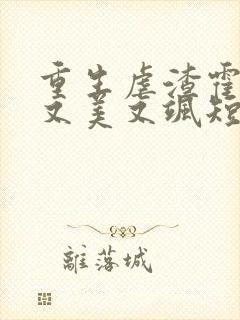 重生虐渣霍
又美又飒短
離落城